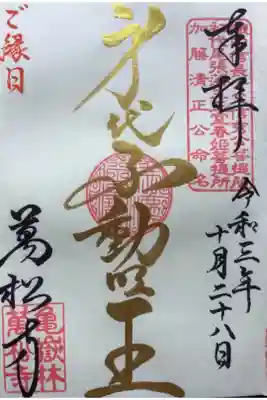 奉拝
令和三年
十月二十八日
加藤清正公命名
身代不動明王
ご縁日
萬松寺
亀嶽林
萬松寺